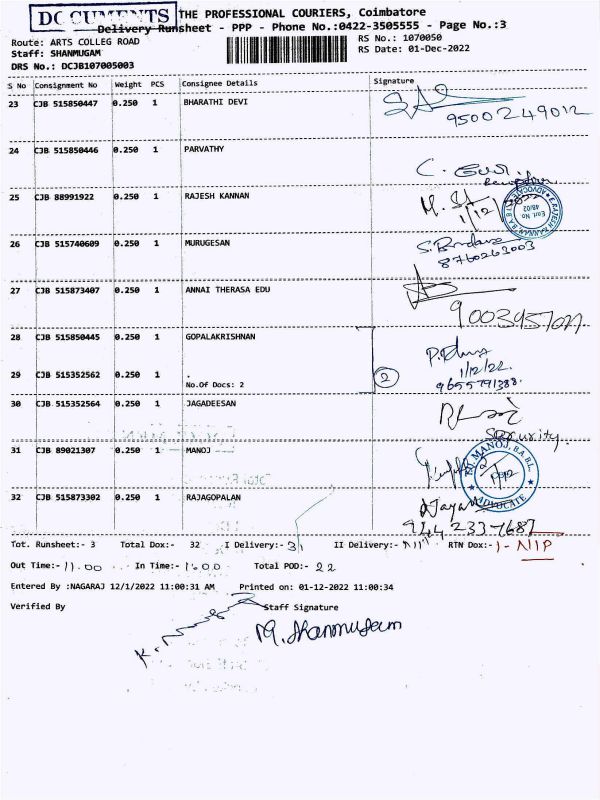 DOCUMENTS
THE PROFESSIONAL COURIERS, Coimbatore
Delivery Runsheet - PPP - Phone No.:0422-3505555 - Page No.:3
Route: ARTS COLLEG ROAD
RS No.: 1070050
Staff: SHANMUGAM
RS Date: 01-Dec-2022
DRS No.: DCJB107005003
S No Consignment No Weight PCS Consignee Details Signature
23 CJB 515850447 0.250 1 BHARATHI DEVI
9500249012
24 CJB 515850446 0.250 1 PARVATHY
25 CJB 88991922 0.250 1 RAJESH KANNAN
1/12/2022
26 CJB 515740609 0.250 1 MURUGESAN
8760263003
27 CJB 515873407 0.250 1 ANNAI THERASA EDU
28 CJB 515850445 0.250 1 GOPALAKRISHNAN
1/12/22.
29 CJB 515352562 0.250 1 .
No.Of Docs: 2
2
9655791388.
30 CJB 515352564 0.250 1 JAGADEESAN
Security.
31 CJB 89021307 0.250 1 MANOJ
MANOJ, B.A.B.L.
ADVOCATE
32 CJB 515873302 0.250 1 RAJAGOPALAN
Tot. Runsheet:- 3 Total Dox:- 32 I Delivery:- 31 II Delivery:- Nil RTN Dox:- 1- N11P
Out Time:- 11.00 In Time:- 1600 Total POD:- 22
Entered By :NAGARAJ 12/1/2022 11:00:31 AM Printed on: 01-12-2022 11:00:34
Verified By Staff Signature
M. Shanmugam